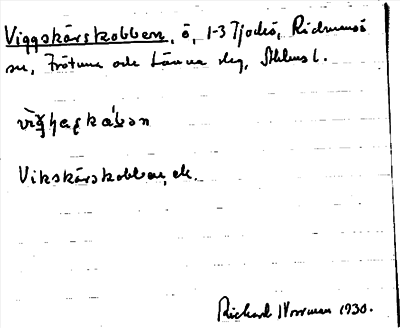 Viggskärskobben, ö, 1-3 Tjockö, Rådmansö
sn, Frötuna och Länna skg, Sthlms l.
Vikskärskobben, ek.
Richard Norrman 1930.